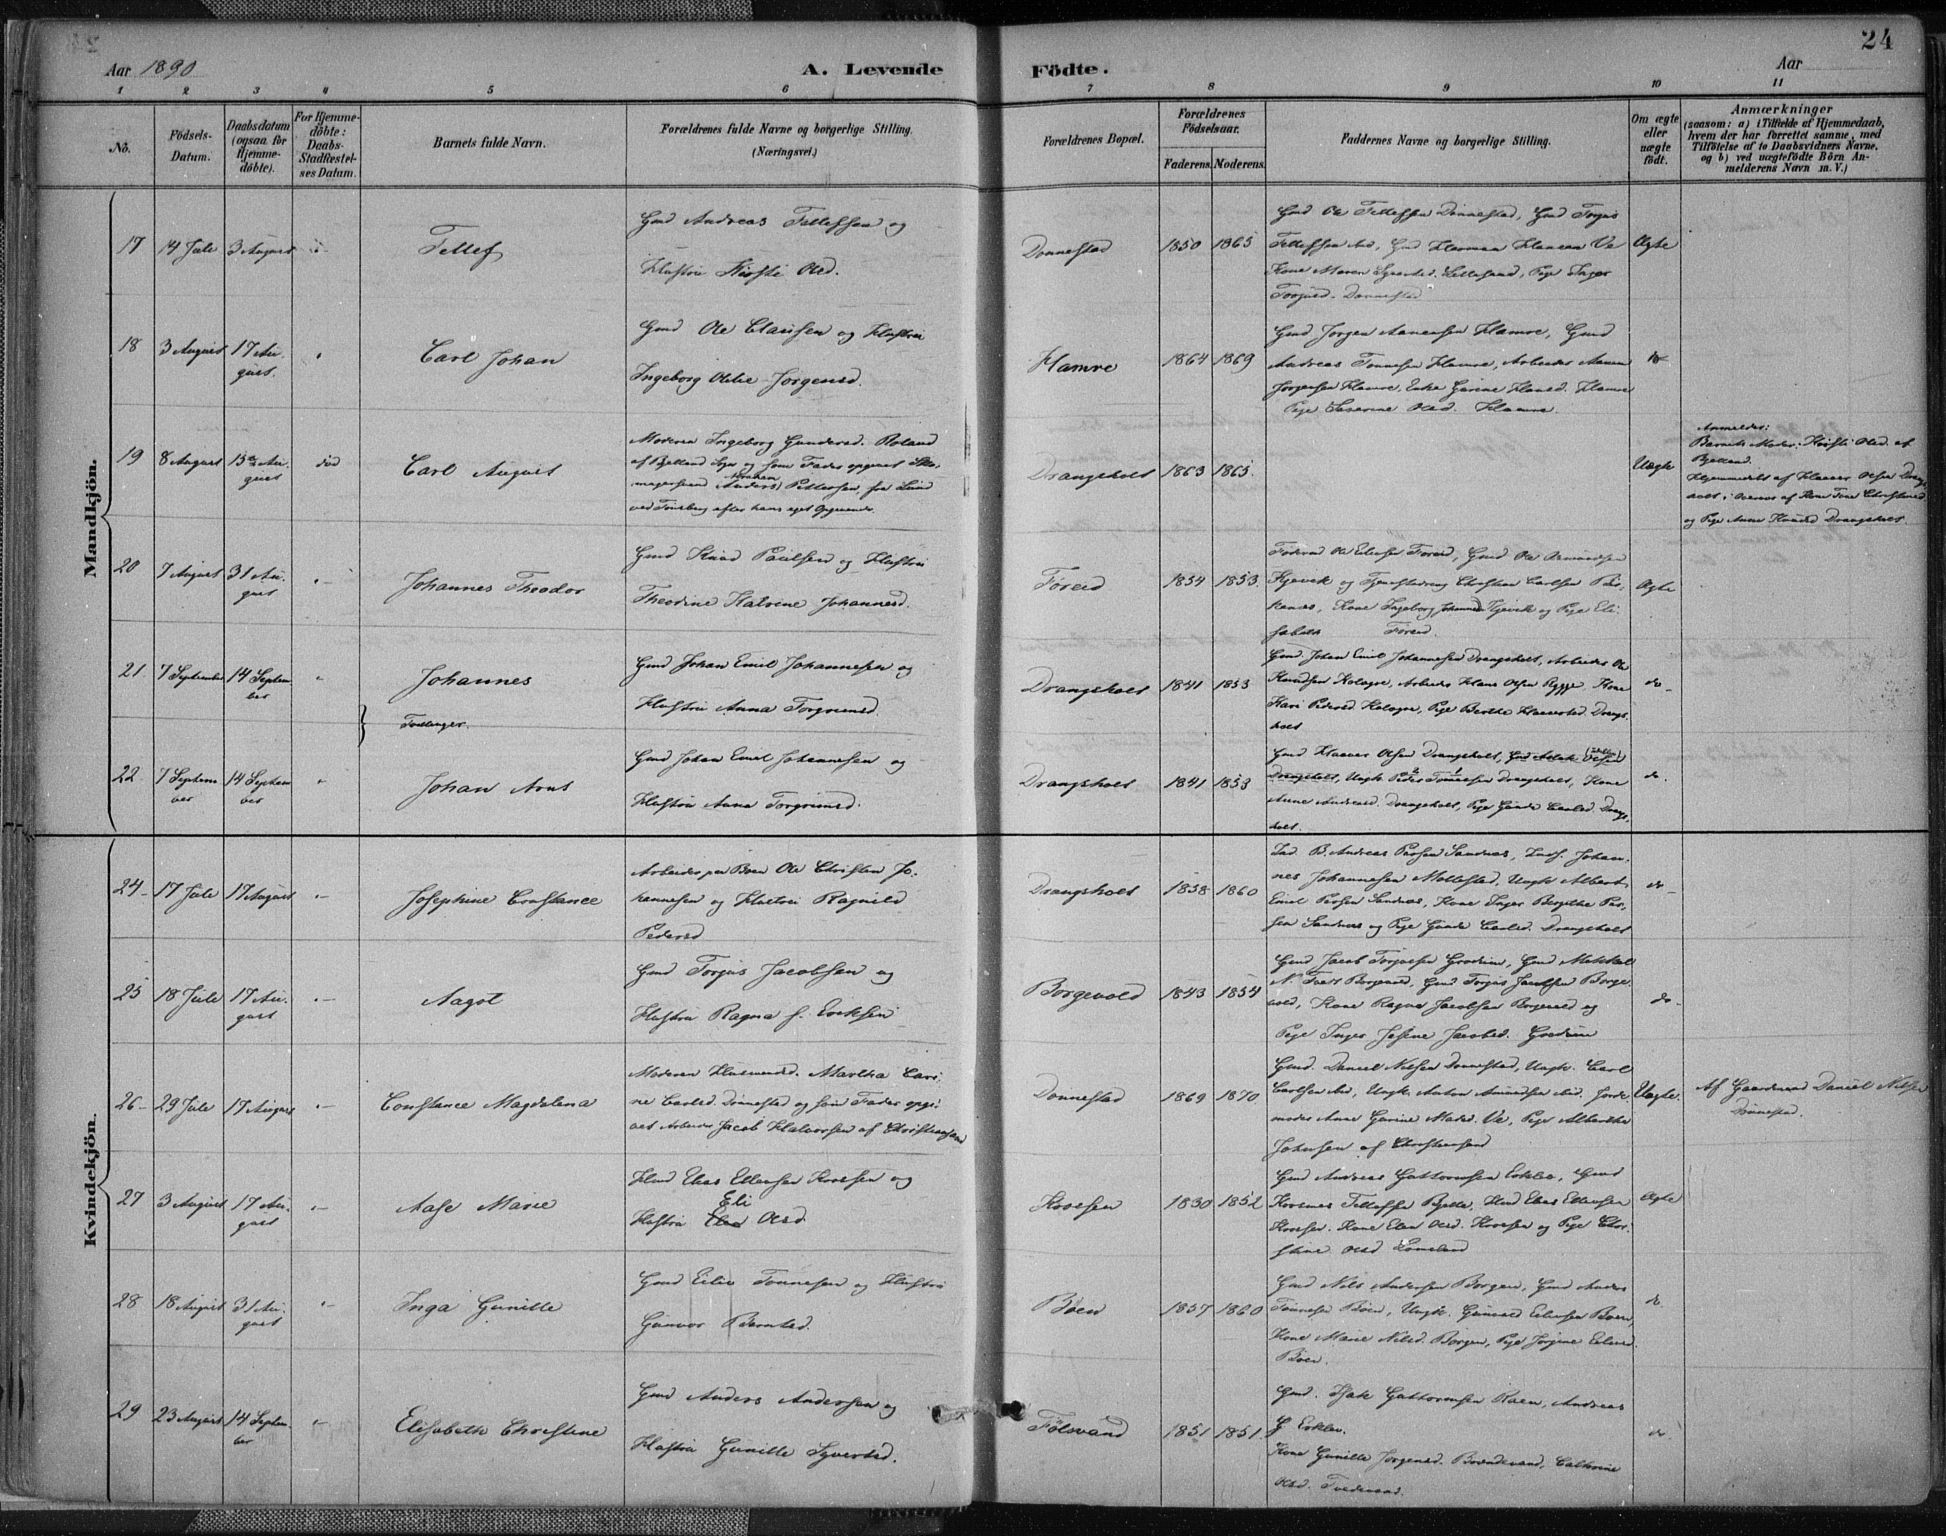 24
Aar 1890
A. Levende
Födte.
Aar
1 2 3 4 5 6 7 8 9 10 11
No.
Födsels-
Datum.
Daabsdatum
(ogsaa for
Hjemme-
döbte).
For Hjemme-
döbte:
Daabs-
Stadfæstel-
ses Datum.
Barnets fulde Navn.
Forældrenes fulde Navne og borgerlige Stilling.
(Næringsvei.)
Forældrenes Bopæl.
Forældrenes
Födselsaar.
Faderens. Moderens.
Faddernes Navne og borgerlige Stilling.
Om ægte
eller
uægte
födt.
Anmærkninger
(saasom: a) i Tilfælde af Hjemmedaab,
hvem der har forrettet samme, med
Tilföielse af to Daabsvidners Navne,
og b) ved uægtefödte Börn An-
melderens Navn m. V.)
Mandkjön.
17
14 Juli
3 August
Tellef
Gmd Andreas Tellefsen og
Hustru Kirsti Olsd.
Donnestad
1850
1865
Gmd Ole Tellefsen Donnestad, Gmd Torjus
Tellefsen ibd, Gmd Herman Hansen Ve
Kone Maren Syvertsd. Lillesand, Pige Inger
Torjusd. Donnestad
Ægte
18
3 August
17 Au-
gust.
Carl Johan
Gmd Ole Clausen og Hustru
Ingeborg Oline Jörgensd.
Hamre
1864
1869
Gmd Jörgen Aanensen Hamre, Gmd
Andreas Tönnesen Hamre, Arbeider Aanen
Jörgensen Hamre, Enke Gurine Hansd. Hamre
Pige Severine Olsd. Hamre.
do
19
8 August
13de Au-
gust
död
Carl August
Moderen Ingeborg Gundersd. Roland
af Bjelland Sogn og som Fader opgivet Sko-
magersvend Anders Pettersen, fra Lund
Abraham
ved Tönsberg efter hans eget Opgivende.
Drangsholt
1863
1865.
Uægte
Anmelder:
Barnets Moder: Kirsti Olsd. af
Bjelland.
Hjemmedöbt af Haaver Olsen Drangs-
holt; Overvær af Kone Tone Christensd
og Pige Anne Knudsd Drangsholt.
20
7 August
31 Au-
gust
Johannes Theodor
Gmd Knud Paulsen og Hustru
Theodine Halvine Johannesd.
Föreid
1854
1853.
Föderaad Ole Eilefsen Foreid, Gmd Ole Asmundsen
Kjevik og Tjenestedreng Christian Carlsen Bir-
kenes, Kone Ingeborg Johannesd Kjevik og Pige Eli-
sabeth Foreid.
Ægte
21
7 September
14 Septem-
ber
Johannes
Gmd Johan Emil Johannesen og
Hustru Anna Torgrimsd.
Drangsholt
1841
1853
Gmd. Johan Emil Johannesen Drangsholt, Arbeider Ole
Knudsen Kalagre, Arbeider Hans Olsen Rygge, Kone
Kari Pedersd. Kalagre, Pige Berthe Haaversd. Drangs-
holt
do
Tvillinger.
22
7 Septem-
ber
14 Septem-
ber
Johan Arnt
Gmd Johan Emil Johannesen og
Hustru Anna Torgrimsd.
Drangsholt
1841
1853
Gmd Haaver Olsen Drangsholt, Gmd Aslak Olsen
Drangsholt, Ungk Peder Tönnesen Drangsholt, Kone
Anne Andersd. Drangsholt, Pige Gunde Carlsd. Drangs-
holt.
do.
Kvindekjön.
24
17 Juli
17 August
Josephine Constance
Arbeider paa Boen Ole Christian Jo-
hannesen og Hustru Ragnild
Pedersd
Drangsholt
1858
1860
Ind. B. Andreas Persen Sandnes, Inds. Johan-
nes Johannesen Mollestad, Ungk Albert
Emil Persen Sandnes, Kone Inger Birgithe Per-
sen Sandnes og Pige Gunde Carlsd. Drangsholt
do
25
18 Juli
17 Au-
gust
Aagot
Gmd Torjus Jacobsen og
Hustru Ragna f. Eriksen
Borgevold
1843
1854
Gmd Jacob Torjusen Grodum, Gmd Mikkel
N. Tveit Borgevold, Gmd Torjus Jacobsen Borge-
vold, Kone Ragna Jacobsen Borgevold og
Pige Inger Josine Jacobsd. Grodum
do.
26
29 Juli
17 August
Constance Magdalena
Moderen Husmandsd. Martha Cari-
ne Carlsd. Dönnestad og som Fader opgi-
vet Arbeider Jacob Halvorsen af Christiansand
Donnestad
1869
1870
Gmd. Daniel Nilsen Donnestad, Ungk. Carl
Carlsen ibd, Ungk. Anton Amundsen ibd. Jorde-
moder Anne Gurine Madsd. Ve, Pige Albertha
Johnsen af Christiansand
Uægte.
Af Gaardmand Daniel Nilsen
Dönnestad.
27
3 August
17 Au-
gust
Aase Marie
Hmd Elias Ellensen Kossen og
Eli
Hustru Elen Olsd
1830
1852
Gmd Andreas Guttormsen Erklev, Gmd
Ægte
28
18 August
31 Au-
gust
Inga Gunille
Gmd Eilev Tönnesen og Hustru
Gunvor Berntsd.
Böen
1857
1860
Gmd Nils Andersen Borgen, Gmd Anders
Tönnesen Böen, Ungk. Gunvald Eilevsen Boen,
Kone Marie Nilsd. Borgen, Pige Jörgine Eilevsd.
Böen.
do.
29
23 August
14 Septem-
ber
Elisabeth Christine
Gmd Anders Andersen og
Hustru Gunille Syvertsd.
Fölsvand
1851
1851
Gmd. Isak Guttormsen Raen, Andreas
G Erklev.
Kone Gunille Jörgensd. Boendevand, Cathrine
Olsd. Tvedevand.
do.